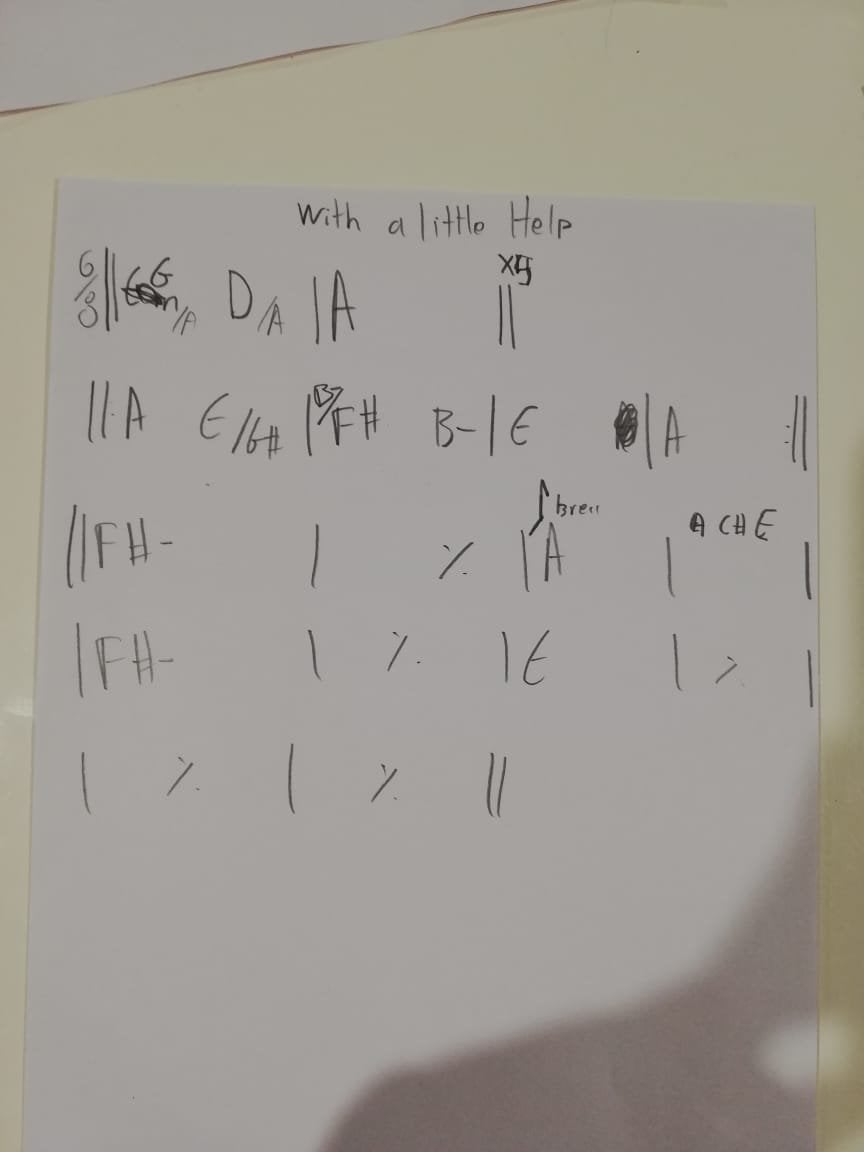 With a little Help
6/8 || G/A D/A | A || x5
||: A E/G# | B-/F# B- | E | A :||
|| F#- | ٪ | A | A C# E |
| F#- | ٪ | E | ٪ |
| ٪ | ٪ ||